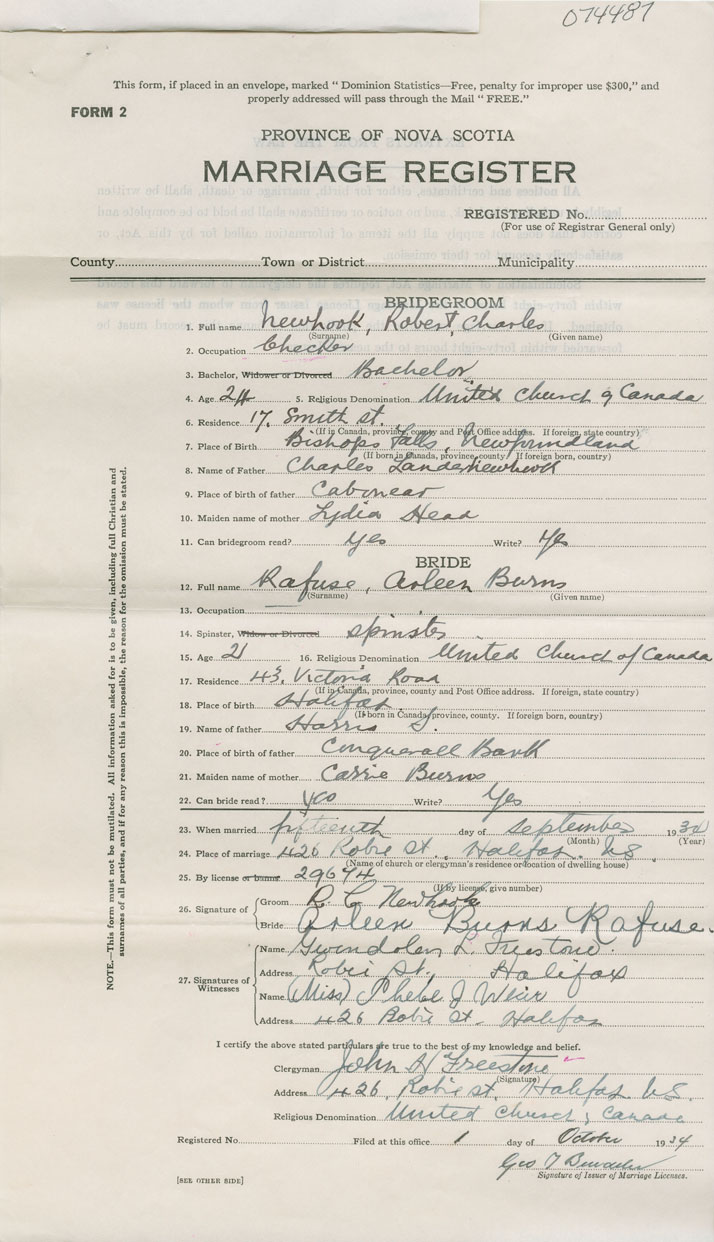 074487
This form, if placed in an envelope, marked " Dominion Statistics—Free, penalty for improper use $300," and
properly addressed will pass through the Mail " FREE."
FORM 2
PROVINCE OF NOVA SCOTIA
MARRIAGE REGISTER
REGISTERED No.
(For use of Registrar General only)
County Town or District Municipality
BRIDEGROOM
1. Full name Newhook, Robert Charles
(Surname) (Given name)
2. Occupation Checker
3. Bachelor, Widower or Divorced Bachelor
4. Age 24 5. Religious Denomination United Church of Canada
6. Residence 17, Smith st.
(If in Canada, province, county and Post Office address. If foreign, state country)
7. Place of Birth Bishops Falls, Newfoundland
(If born in Canada, province, county. If foreign born, country)
8. Name of Father Charles Newhook
9. Place of birth of father Carbonear
10. Maiden name of mother Lydia Head
11. Can bridegroom read? Yes Write? Yes
BRIDE
12. Full name Rafuse, Arleen Burns
(Surname) (Given name)
13. Occupation
14. Spinster, Widow or Divorced Spinster
15. Age 21 16. Religious Denomination United Church of Canada
17. Residence 43, Victoria Road
(If in Canada, province, county and Post Office address. If foreign, state country)
18. Place of birth Halifax
(If born in Canada, province, county. If foreign born, country)
19. Name of father Harris S.
20. Place of birth of father Conquerall Bank
21. Maiden name of mother Carrie Burns
22. Can bride read? Yes Write? Yes
23. When married fifteenth day of September 1934
(Month) (Year)
24. Place of marriage 426 Robie St., Halifax, N.S
(Name of church or clergyman's residence or location of dwelling house)
25. By license or banns 29674
(If by license, give number)
26. Signature of Groom R. C Newhook
Bride Arleen Burns Rafuse.
27. Signatures of Witnesses
Name Gwendolen L. Freestone.
Address Robie St., Halifax
Name (Miss) Phebe J Weir
Address 426 Robie St. Halifax
I certify the above stated particulars are true to the best of my knowledge and belief.
Clergyman John H Freestone
(Signature)
Address 426, Robie st. Halifax N.S.
Religious Denomination United Church of Canada
Registered No. Filed at this office 1 day of October 1934
Geo T
Signature of Issuer of Marriage Licenses.
[SEE OTHER SIDE]
NOTE.—This form must not be mutilated. All information asked for is to be given, including full Christian and
surnames of all parties, and if for any reason this is impossible, the reason for the omission must be stated.